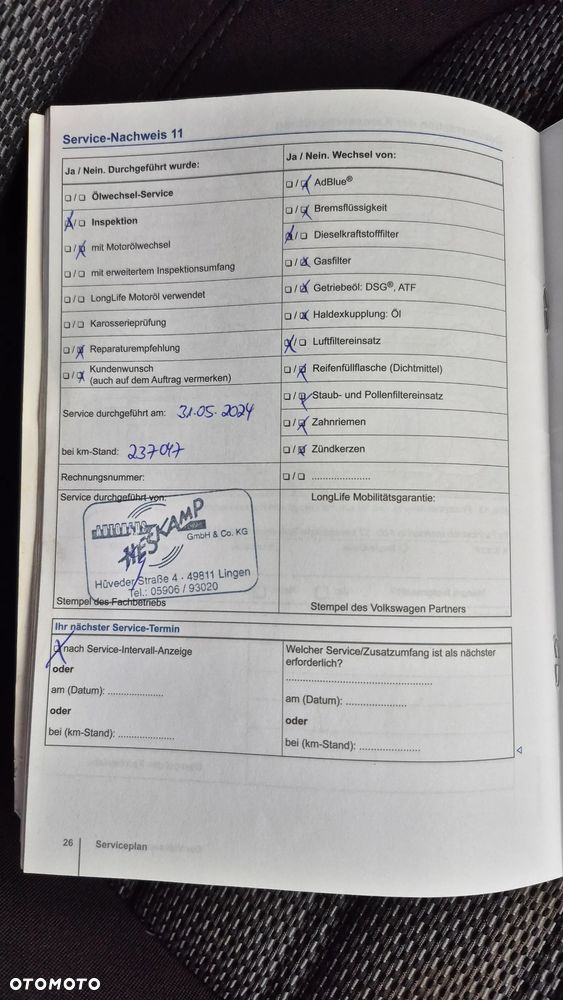 Service-Nachweis 11
Ja / Nein. Durchgeführt wurde:
❏ / ❏ Ölwechsel-Service
❏ / ❏ Inspektion
❏ / ❏ mit Motorölwechsel
❏ / ❏ mit erweitertem Inspektionsumfang
❏ / ❏ LongLife Motoröl verwendet
❏ / ❏ Karosserieprüfung
❏ / ❏ Reparaturempfehlung
❏ / ❏ Kundenwunsch
(auch auf dem Auftrag vermerken)
Service durchgeführt am: 31.05.2024
bei km-Stand: 237047
Rechnungsnummer:
Service durchgeführt von:
HESKAMP
GmbH & Co. KG
Hüveder Straße 4 · 49811 Lingen
Tel.: 05906 / 93020
Stempel des Fachbetriebs
Ja / Nein. Wechsel von:
❏ / ❏ AdBlue®
❏ / ❏ Bremsflüssigkeit
❏ / ❏ Dieselkraftstofffilter
❏ / ❏ Gasfilter
❏ / ❏ Getriebeöl: DSG®, ATF
❏ / ❏ Haldexkupplung: Öl
❏ / ❏ Luftfiltereinsatz
❏ / ❏ Reifenfüllflasche (Dichtmittel)
❏ / ❏ Staub- und Pollenfiltereinsatz
❏ / ❏ Zahnriemen
❏ / ❏ Zündkerzen
❏ / ❏ .....................
LongLife Mobilitätsgarantie:
Stempel des Volkswagen Partners
Ihr nächster Service-Termin
❏ nach Service-Intervall-Anzeige
oder
am (Datum): ....................
oder
bei (km-Stand): ....................
Welcher Service/Zusatzumfang ist als nächster
erforderlich?
..................................................
am (Datum): ......................
oder
bei (km-Stand): ......................
26 Serviceplan
OTOMOTO